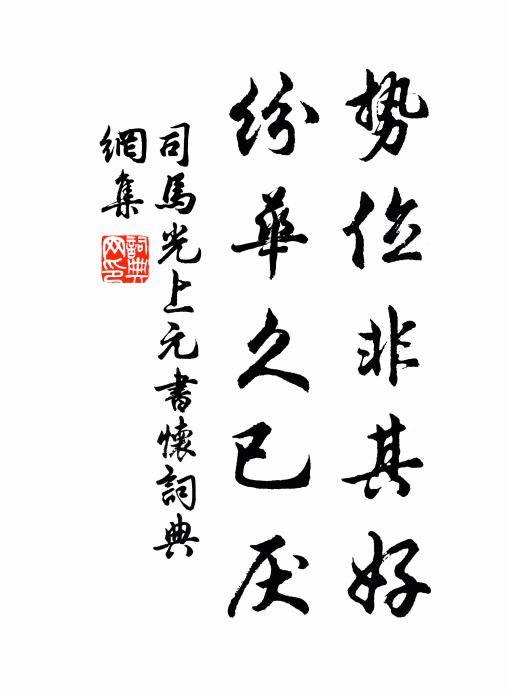 势位非其好
纷華久已厌
司馬光上元書懷詞典
網集
詞典网印